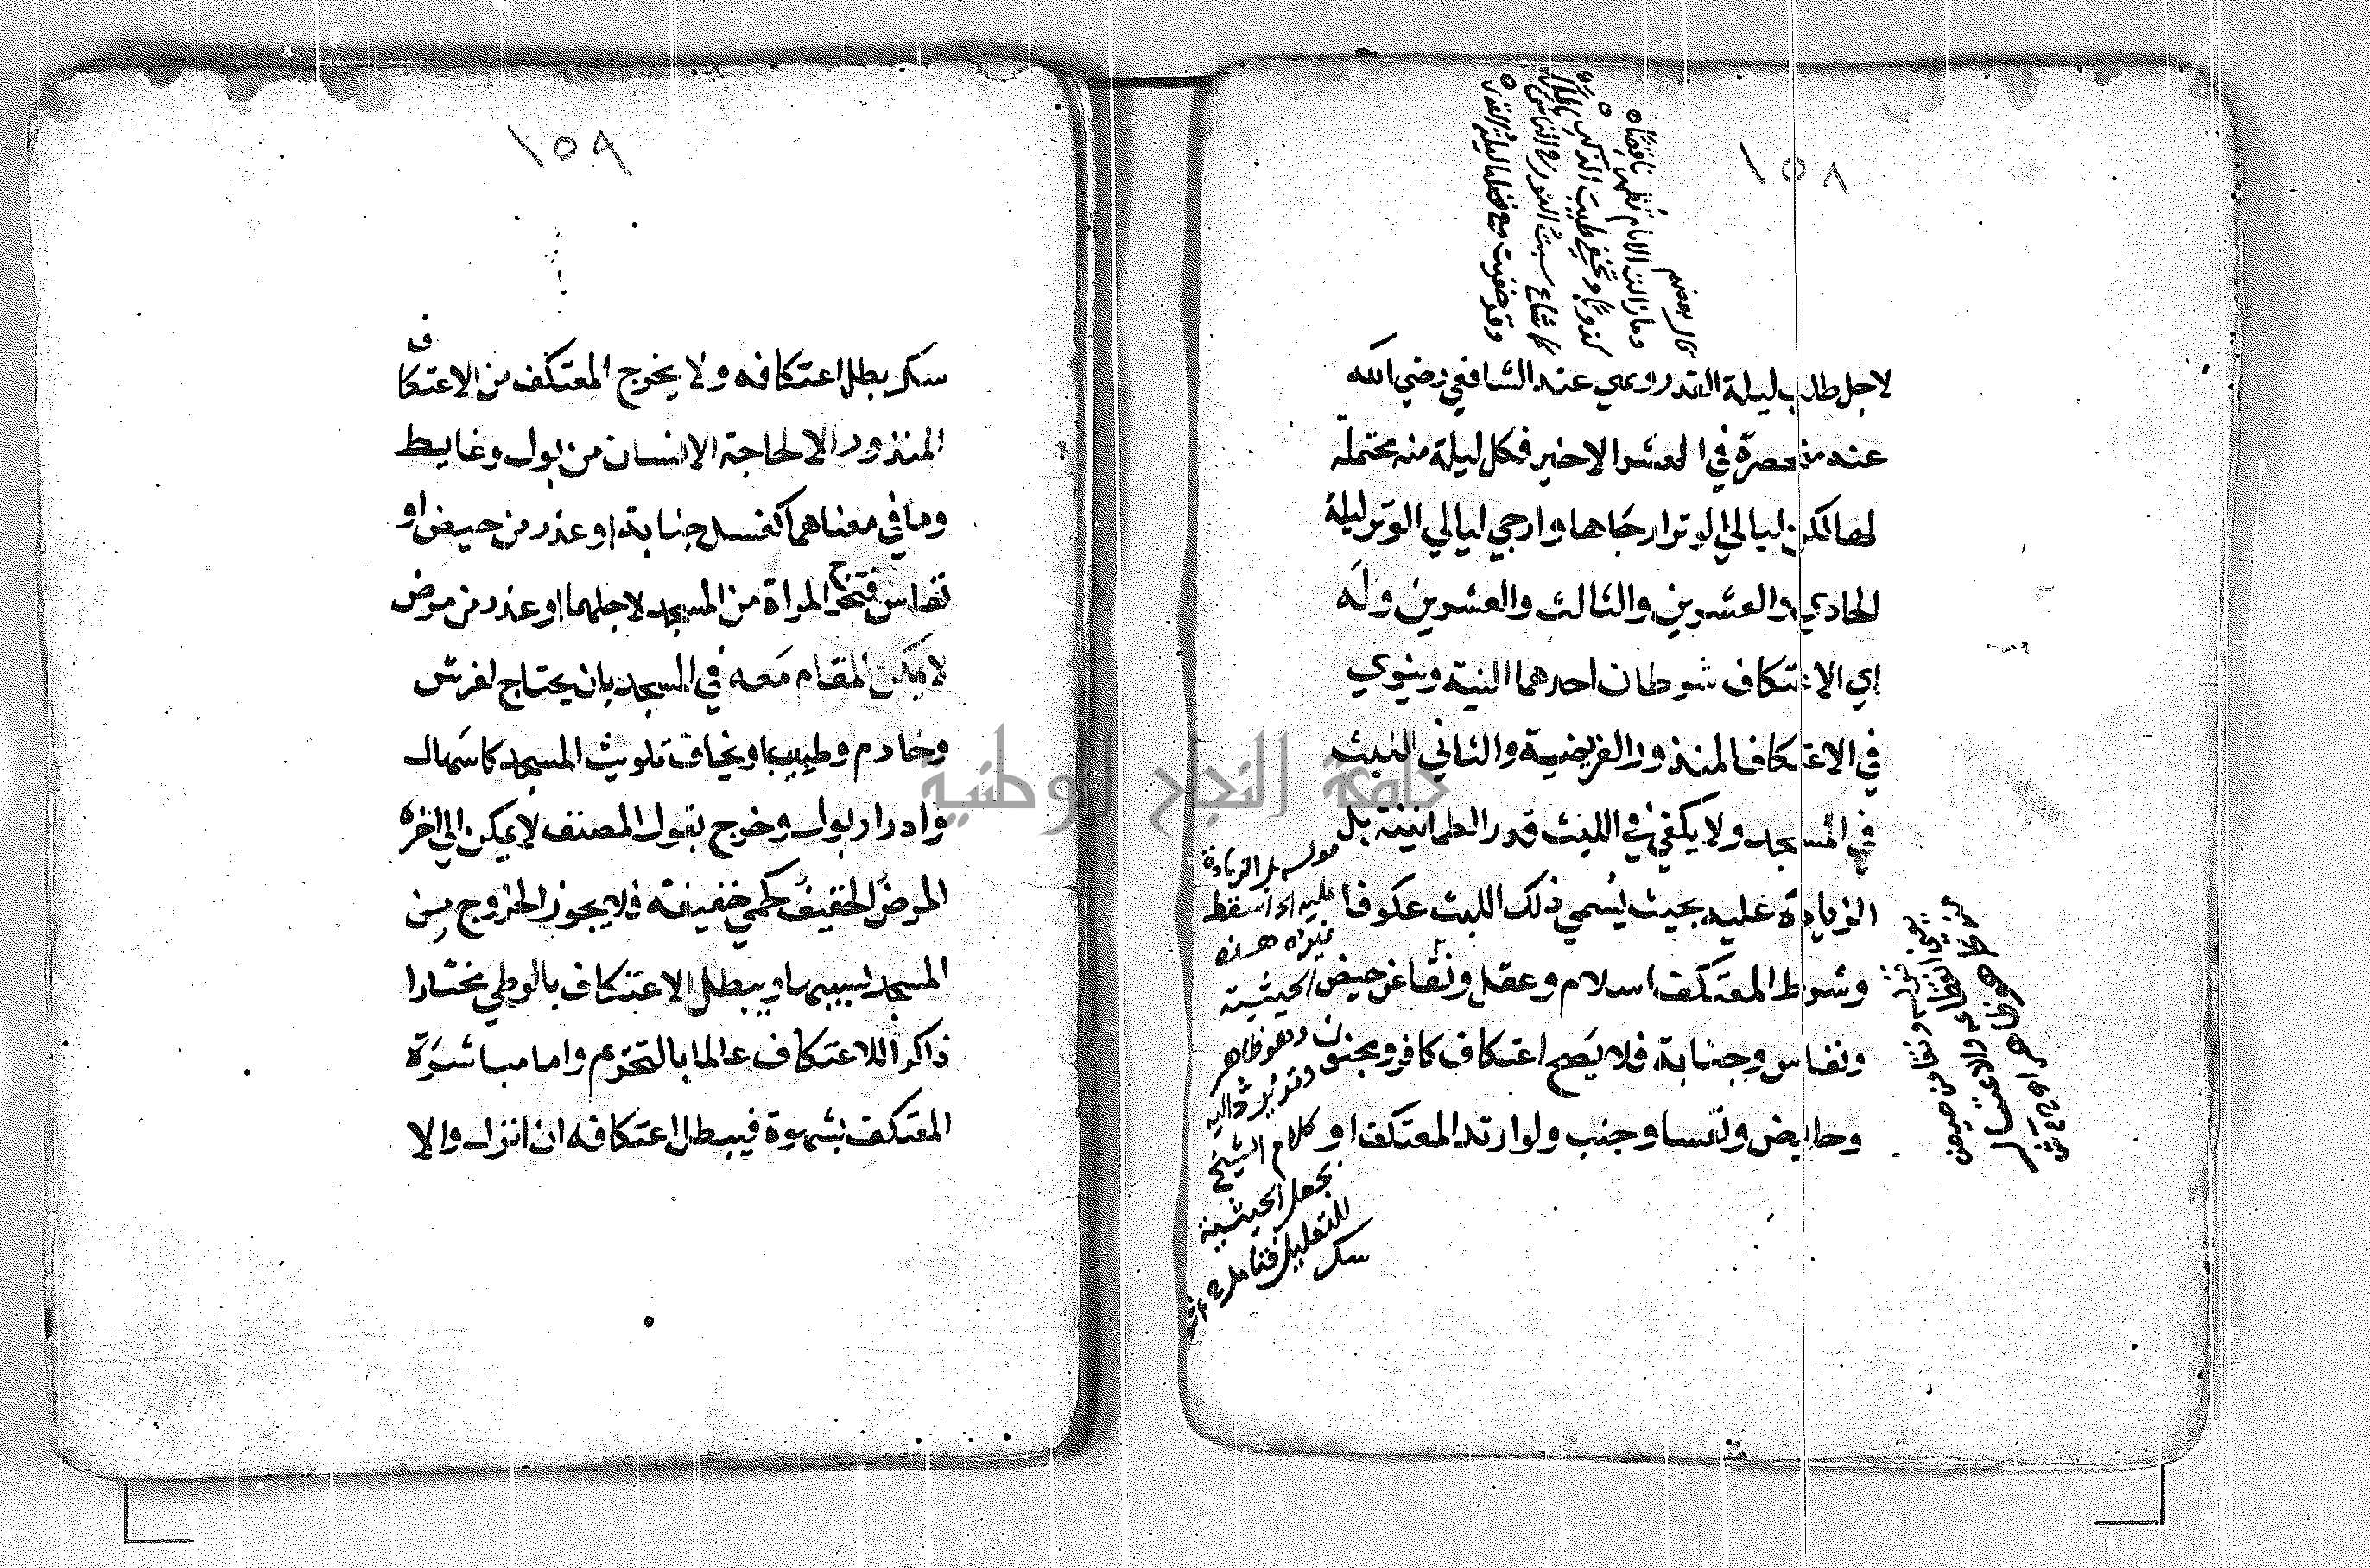 ١٥٨
قال بعضهم
وما زالت الايام تظهر ناقصا
وتخفي طيب الذكر
كما شاع سبت
وقد خفيت مع فضلها ليلة القدر
لاجل طلب ليلة القدر وهي عند الشافعي رضي الله
عنه منحصرة في العشر الاخير فكل ليلة منه محتملة
لها لكن ليالي الوتر ارجاها وارجي ليالي الوتر ليلة
الحادي والعشرين والثالث والعشرين وله
اي الاعتكاف شرطان احدهما النية وينوي
في الاعتكاف المنذور الفرضية والثاني اللبث
في المسجد ولا يكفي في اللبث قدر الطمانينة بل
الزيادة عليه بحيث يسمي ذلك اللبث عكوفا
وشرط المعتكف اسلام وعقل ونقا عن حيض
ونفاس وجنابة فلا يصح اعتكاف كافر ومجنون
وحايض ونفسا وجنب ولو ارتد المعتكف او
بل الزيادة
عليه
غيره هذه
الحيثية
وهو ظاهر
كلام الشيخ
بجعل الحيثية
للتعليل فتامل
سكر
ونقا من حيض
١٥٩
سكر بطل اعتكافه ولا يخرج المعتكف من الاعتكاف
المنذور الا لحاجة الانسان من بول وغايط
وما في معناهما كغسل جنابة او عذر من حيض او
نفاس فتخرج المراة من المسجد لاجلهما او عذر من مرض
لا يمكن المقام معه في المسجد بان يحتاج لفرش
وخادم وطبيب او يخاف تلويث المسجد كاسهال
وادرار بول وخرج بقول المصنف لا يمكن الي اخره
المرض الخفيف كحمي خفيفة فلا يجوز الخروج من
المسجد بسببها ويبطل الاعتكاف بالوطي مختارا
ذاكرا للاعتكاف عالما بالتحريم واما مباشرة
المعتكف بشهوة فيبطل اعتكافه ان انزل والا
جامعة النجاح الوطنية